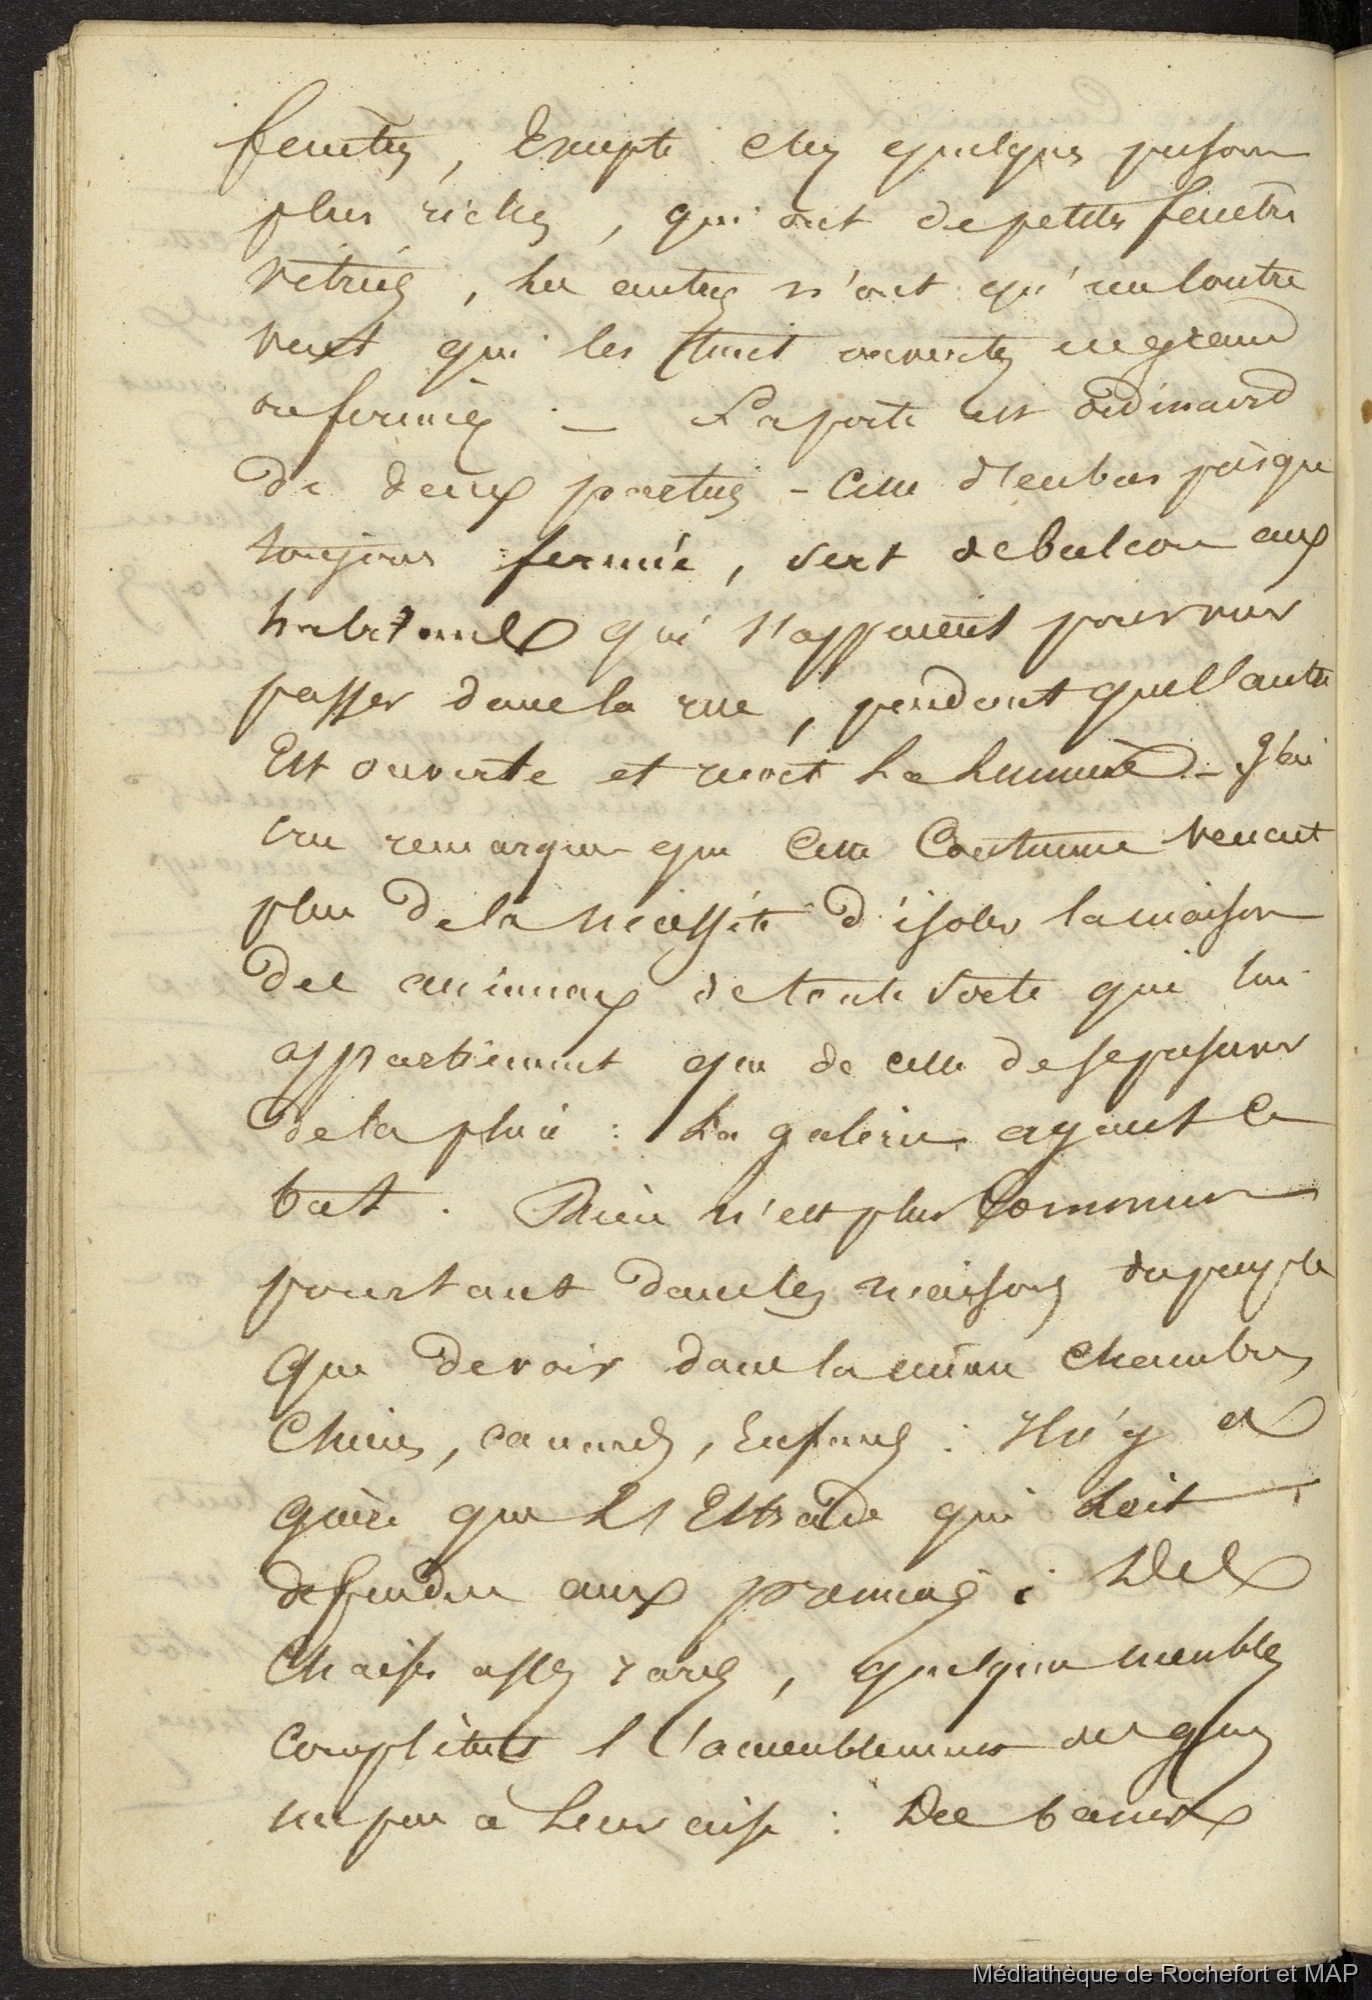 fenêtres, Excepté chez quelques personnes
plus riches, qui ont de petites fenêtres
vitrées, les autres n'ont qu'un contre
vent qui les tient ouvertes en grand
ou fermées — La porte est ordinaire
de deux parties - Celle d'en bas presque
toujours fermée, sert de balcon aux
habitants qui s'appuient pour voir
passer dans la rue, pendant que l'autre
Est ouverte et reçoit la lumière - J'ai
cru remarquer que cette Coutume venait
plus de la nécessité d'isoler la maison
des animaux de toute sorte qui lui
appartiennent que de celle de se préserver
de la pluie : La galerie ayant ce
but. Rien n'est plus Commun
pourtant dans les maisons du peuple
que de voir dans la même chambre,
Chiens, canards, Enfants : Il n'y a
guère que l'Estrade qui soit
défendue aux premiers : Des
Chaises assez rares, quelques meubles
complètent l'ameublement des gens
un peu à leur aise : Des bancs
Médiathèque de Rochefort et MAP